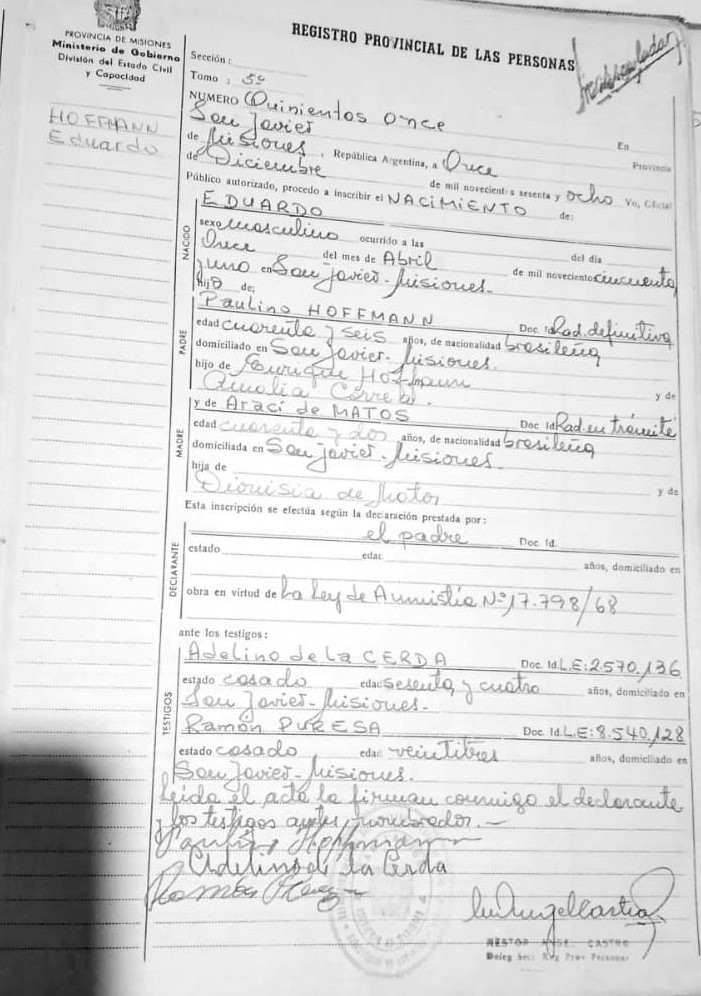 PROVINCIA DE MISIONES
Ministerio de Gobierno
División del Estado Civil
y Capacidad
HOFFMANN
Eduardo
REGISTRO PROVINCIAL DE LAS PERSONAS
Sección:
Tomo: 5º
NUMERO Quinientos once
En San Javier
Provincia
de Misiones, República Argentina, a Once
de Diciembre de mil novecientos sesenta y ocho Yo, Oficial
Público autorizado, procedo a inscribir el NACIMIENTO de:
NACIDO
EDUARDO
sexo masculino ocurrido a las del día
Once del mes de Abril de mil novecientos cincuenta
y uno en San Javier - Misiones.
hijo de;
PADRE
Paulino HOFFMANN Doc. Id. Rad. definitiva
edad cuarenta y seis años, de nacionalidad brasileña
domiciliado en San Javier - Misiones.
hijo de Enrique Hoffmann y de
Amalia Correa.
MADRE
y de Araci de MATOS Doc. Id. Rad. en trámite
edad cuarenta y dos años, de nacionalidad brasileña
domiciliada en San Javier - Misiones.
hija de y de
Dionisia de Matos
Esta inscripción se efectúa según la declaración prestada por:
DECLARANTE
el padre Doc. Id.
estado edad años, domiciliado en
obra en virtud de La Ley de Amnistía Nº 17.798/68
ante los testigos:
TESTIGOS
Adelino de la CERDA Doc. Id. L.E: 2.570.136
estado casado edad sesenta y cuatro años, domiciliado en
San Javier - Misiones.
Ramón PURESA Doc. Id. L.E: 8.540.128
estado casado edad veintitres años, domiciliado en
San Javier - Misiones.
Leída el acta la firman conmigo el declarante
y los testigos antes nombrados. -
Paulino Hoffmann
Adelino de la Cerda
Ramón
NESTOR ANGEL CASTRO
Deleg Secc Reg Prov Personas